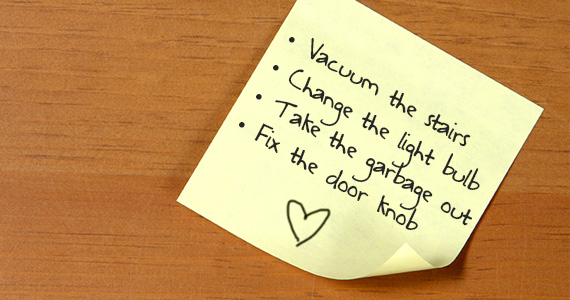 • Vacuum the stairs
• Change the light bulb
• Take the garbage out
• Fix the door knob